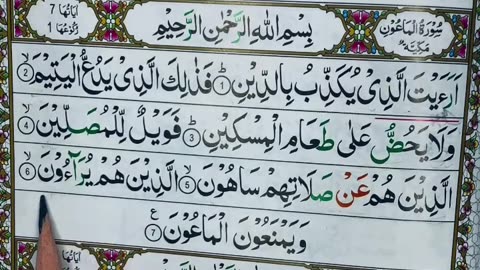 اٰيَاتُهَا 7
رُكُوْعُهَا 1
بِسْمِ اللّٰهِ الرَّحْمٰنِ الرَّحِيْمِ
سُوْرَةُ الْمَاعُوْن
مَكِّيَّة
اَرَءَيْتَ الَّذِىْ يُكَذِّبُ بِالدِّيْنِ ① فَذٰلِكَ الَّذِىْ يَدُعُّ الْيَتِيْمَ ②
وَلَا يَحُضُّ عَلٰى طَعَامِ الْمِسْكِيْنِ ③ فَوَيْلٌ لِّلْمُصَلِّيْنَ ④
الَّذِيْنَ هُمْ عَنْ صَلَاتِهِمْ سَاهُوْنَ ⑤ الَّذِيْنَ هُمْ يُرَآءُوْنَ ⑥
وَيَمْنَعُوْنَ الْمَاعُوْنَ ⑦